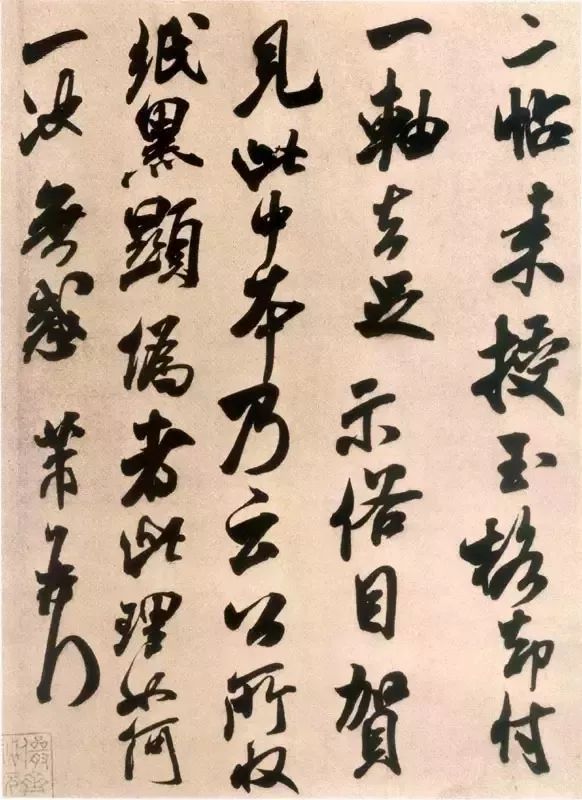 二帖未授玉格却付
一軸去足示俗目賀
見此中本乃云公所收
紙黑顯僞者此理如何
一决無惑 芾頓首